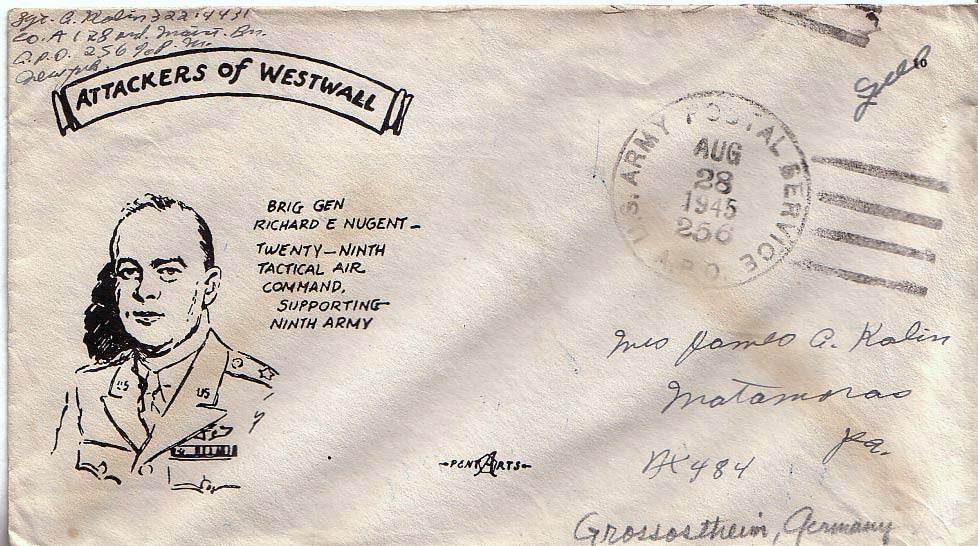 Sgt. A. Kalin 32214431
Co. A 128 Ord. Maint. Bn.
A.P.O. 256 % P.M.
ATTACKERS of WESTWALL
Free
10
U.S. ARMY POSTAL SERVICE
AUG
28
1945
256
A.P.O.
BRIG GEN
RICHARD E NUGENT —
TWENTY—NINTH
TACTICAL AIR
COMMAND,
SUPPORTING
NINTH ARMY
US US
Mrs James A. Kalin
Matamoras
Pa.
-PENT ARTS-
484
Grossostheim, Germany